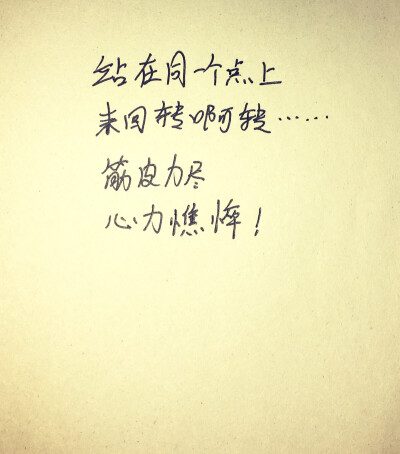 站在同一个点上
来回转啊转……
筋皮力尽
心力憔悴！